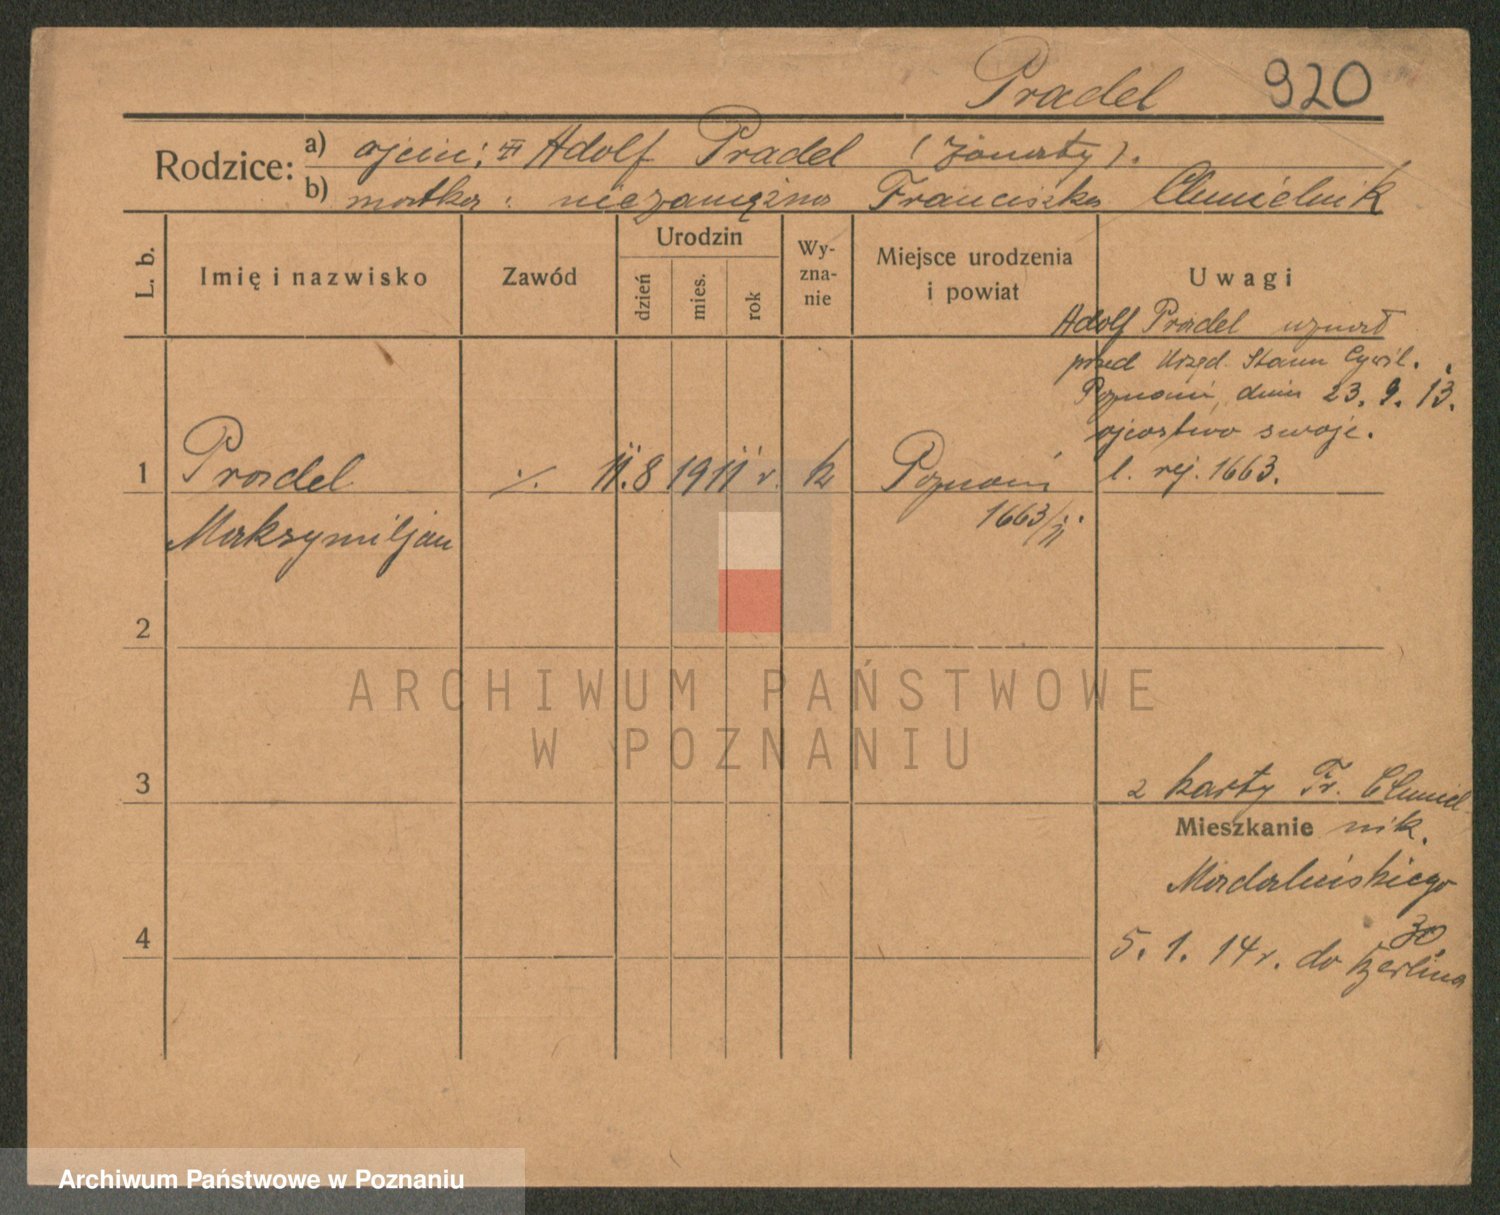 Pradel 920
Rodzice: a) ojciec: Adolf Pradel (żonaty).
b) matka: niezamężna Franciszka Chmielnik
L. b.
Imię i nazwisko
Zawód
Urodzin
dzień
mies.
rok
Wy-
zna-
nie
Miejsce urodzenia
i powiat
Uwagi
Adolf Pradel uznał
przed Urzęd. Stanu Cywil.
Poznań, dnia 23. 9. 13.
ojcostwo swoje.
l. rej. 1663.
1 Pradel ·/. 11. 8 1911 r. k Poznań
Maksymiljan 1663/11.
2
ARCHIWUM PAŃSTWOWE
W POZNANIU
3
2 karty Fr. Chmiel
Mieszkanie nik.
Madalińskiego
30.
4
5. 1. 14 r. do Berlina
Archiwum Państwowe w Poznaniu